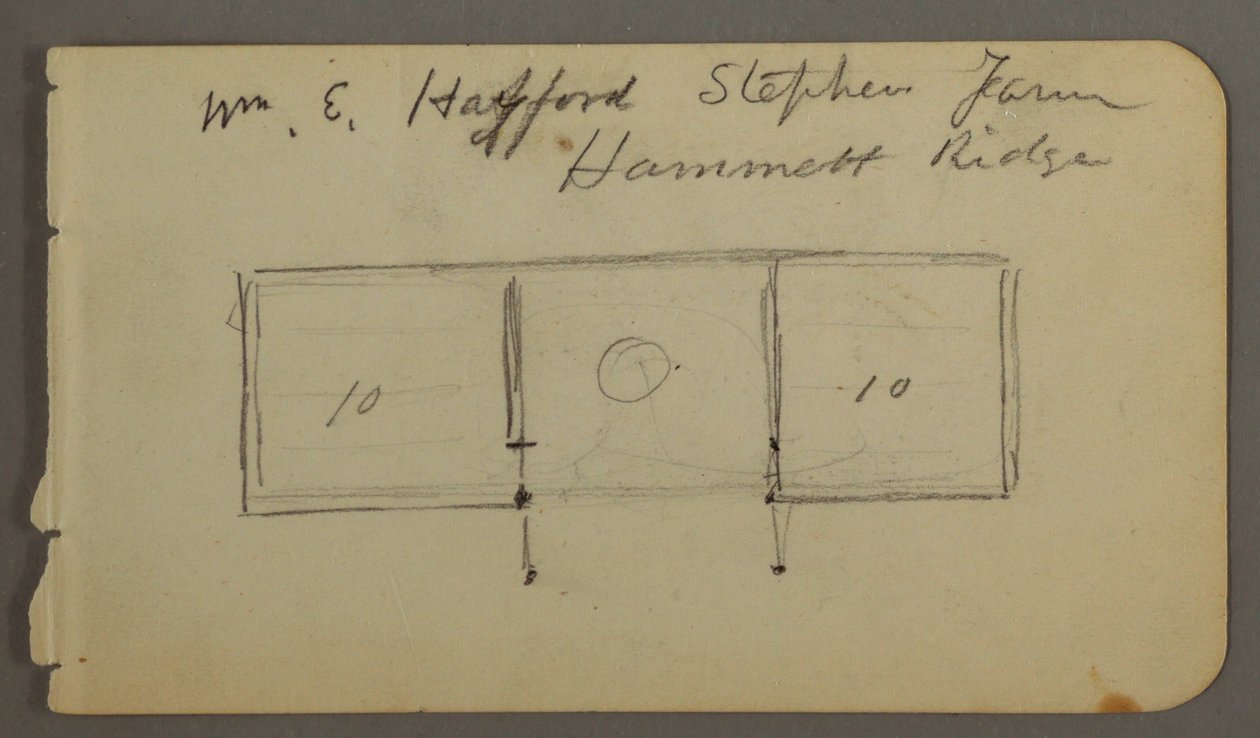 Wm. E. Hafford Stephen Farm
Hammett Ridge
10 10